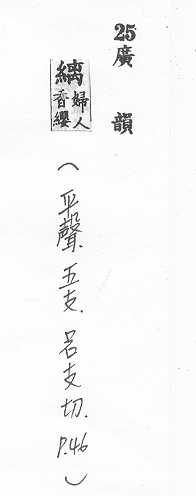 25廣韻
縭婦人香纓
(平聲.五支.呂支切.P.46)